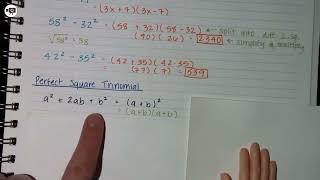 (3x+7)(3x-7)
58² - 32² = (58 + 32)(58 - 32) ← split into diff. 2 sq.
(90)(26) = 2340 ← simplify & multiply
√58² = 58
42² - 35² = (42+35)(42-35)
(77)(7) = 539
Perfect Square Trinomial
a² + 2ab + b² = (a+b)²
= (a+b)(a+b)